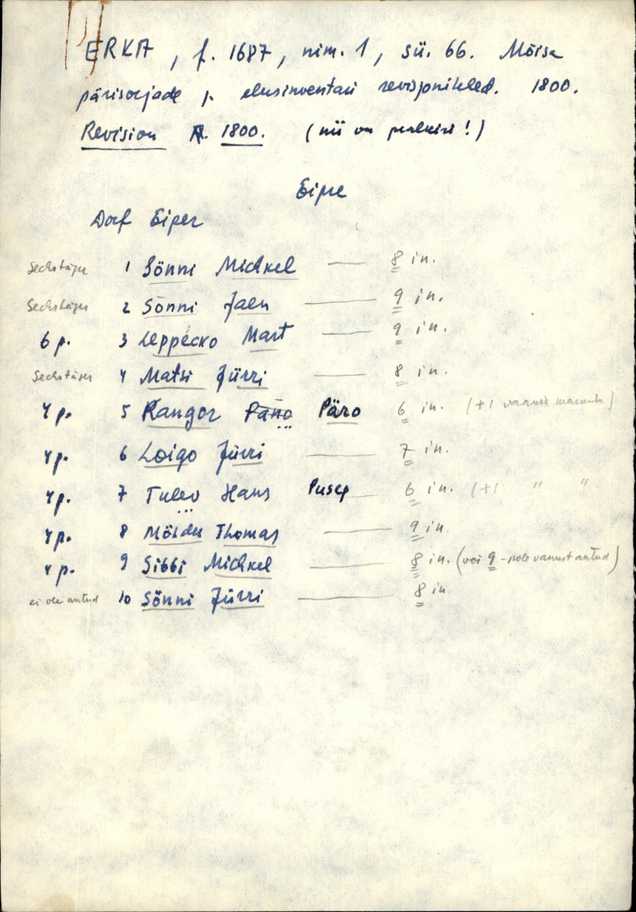 ERKA, f. 1687, nim. 1, sü. 66. Mõisa
pärisorjade ja elusinventari revisjonilehed. 1800.
Revision A. 1800. (nii on pealkiri!)
Eipre
Dorf Eiper
Sechstäger 1 Sönni Mickel — 8 in.
Sechstäger 2 Sonni Jaen — 9 in.
6 p. 3 Leppecko Mart — 9 in.
Sechstäger 4 Matsi Jürri — 8 in.
4 p. 5 Kangor Päno Päro 6 in. (+1
4 p. 6 Loigo Jürri — 7 in.
4 p. 7 Tulev Hans Pusep — 6 in. (+1 " "
4 p. 8 Möldu Thomas — 9 in.
4 p. 9 Sibbi Mickel — 8 in. (või 9 - pole vanust antud)
ei ole antud 10 Sönni Jürri — 8 in.